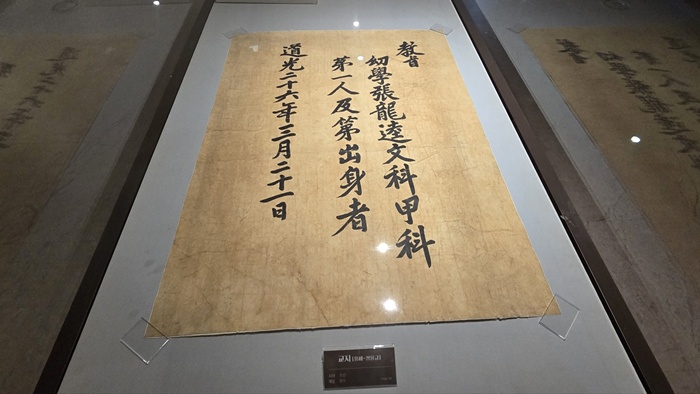 教旨
幼學張龍逵文科甲科
第一人及第出身者
道光二十六年三月二十一日
교지